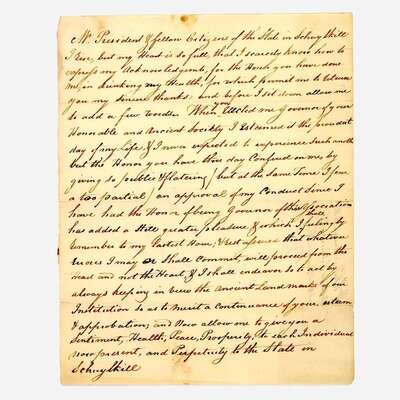 Mr President & fellow Citizens of the State in Schuylkill
I Rise, but my Heart is so full, that I scarcely know how to
express my Acknowledgments, for the Honor you have done
me, in drinking my Health, for which permit me to return
you my sincere thanks: and before I sit down allow me
to add a few words. When you Elected me Governor of your
Honorable and Ancient Society I esteemed it the proudest
day of my Life & I never expected to experience such another
but the Honor you have this day Confered on me, by
giving so public & flattering (but at the same time I fear
a too partial) an approval of my Conduct Since I
have had the Honor of being Governor of the Association
has added a Still greater pleasure & which I shall
remember to my Latest Hour, & rest assured that whatever
Errors I may or Shall Commit, will proceed from the
Head and not the Heart, & I shall endeavor so to act by
always keeping in view the Ancient Landmarks of our
Institution so as to merit a Continuance of your esteem
& approbation; and Now allow me to give you a
Sentiment, Health, Peace, Prosperity, to each Individual
now present, and Perpetuity to the State in
Schuylkill